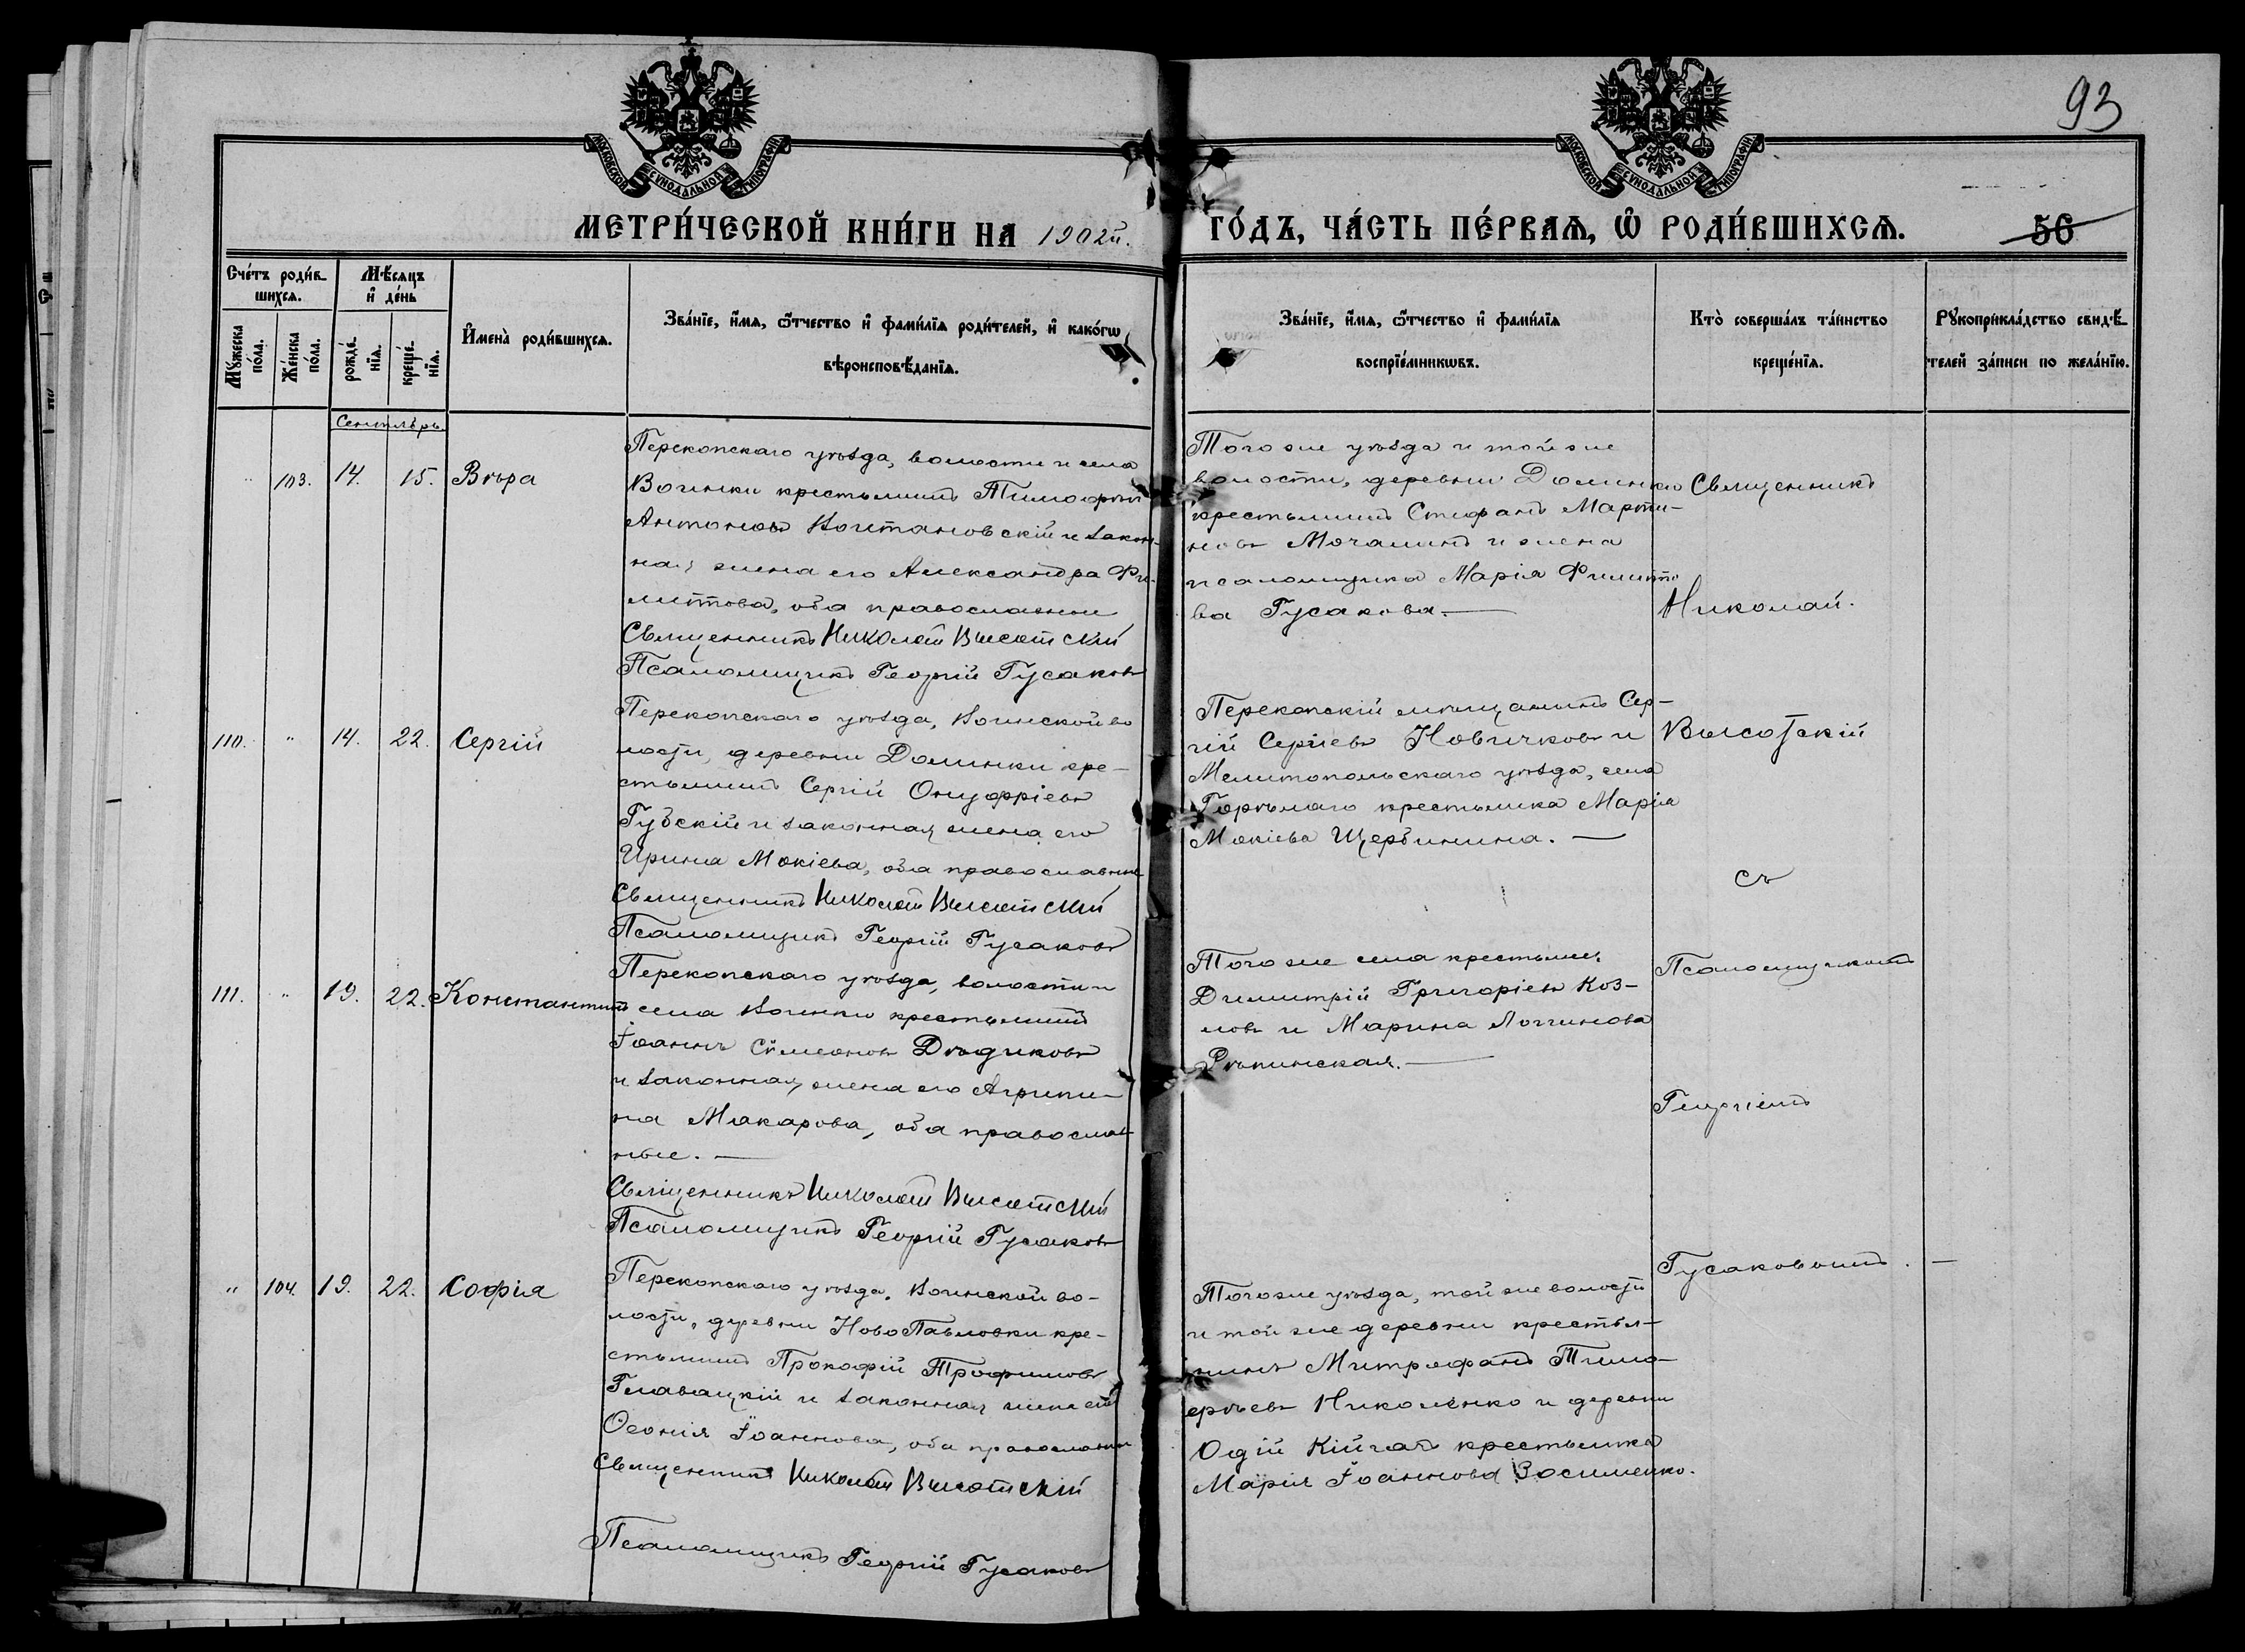 93
МОСКОВСКОЙ СУНОДАЛЬНОЙ ТИПОГРАФІИ
МОСКОВСКОЙ СУНОДАЛЬНОЙ ТИПОГРАФІИ
МЕТРИ́ЧЕСКОЙ КНИ́ГИ НА 1902й.
ГО́ДЪ, ЧА́СТЬ ПЕ́РВАѦ, Ѡ҆ РОДИ́ВШИХСѦ.
56
Сче́тъ роди́в
шихсѧ.
Мѣ́сѧцъ
и҆ де́нь
Мꙋ́жеска
по́ла.
Же́нска
по́ла.
рожде́
нїѧ.
креще́
нїѧ.
И҆мена̀ роди́вшихсѧ.
Зва́нїе, и҆́мѧ, ѻ҆́тчество и҆ фами́лїѧ роди́телей, и҆ како́гѡ
вѣроисповѣ́данїѧ.
Зва́нїе, и҆́мѧ, ѻ҆́тчество и҆ фами́лїѧ
воспрїе́мникѡвъ.
Кто̀ соверша́лъ та́инство
креще́нїѧ.
Рꙋкоприкла́дство свидѣ́
телей за́писи по жела́нїю.
Сентябрь
" 103. 14. 15. Вѣра
Перекопскаго уѣзда, волости и села
Воинки крестьянинъ Тимофей
Антоновъ Воитановскій и закон-
ная жена его Александра Фи-
липпова, оба православные
Священникъ Николай Высотскій
Псаломщикъ Георгій Гусаковъ
Того же уѣзда и той же
волости, деревни Долинки
крестьянинъ Стефанъ Марти-
новъ Мочалинъ и жена
псаломщика Марія Филиппо
ва Гусакова.—
Священникъ
Николай.
110. " 14. 22. Сергій
Перекопскаго уѣзда, Воинской во
лости, деревни Долинки кре-
стьянинъ Сергій Онуфріевъ
Губскій и законная жена его
Ирина Мокіева, оба православные
Священникъ Николай Высотскій
Псаломщикъ Георгій Гусаковъ
Перекопскій мѣщанинъ Сер-
гій Сергіевъ Новичковъ и
Мелитопольскаго уѣзда, села
Горѣлаго крестьянка Марія
Мокіева Щербинина.—
Высотскій
съ
111. " 19. 22. Константинъ
Перекопскаго уѣзда, волости и
села Воинки крестьянинъ
Іоаннъ Сѵмеоновъ Дѣдиковъ
и законная жена его Агрипи-
на Макарова, оба православ-
ные.—
Священникъ Николай Высотскій
Псаломщикъ Георгій Гусаковъ
Того же села крестьяне:
Димитрій Григоріевъ Коз-
ловъ и Марина Логгинова
Рѣпинская.—
Псаломщикомъ
Георгіемъ
" 104. 19. 22. Софія
Перекопскаго уѣзда, Воинской во-
лости, деревни НовоПавловки кре-
стьянинъ Прокофій Трофимовъ
Главацкій и законная жена его
Ѳеонія Іоаннова, оба православные
Священникъ Николай Высотскій
Псаломщикъ Георгій Гусаковъ
Того же уѣзда, той же волости
и той же деревни крестья-
нинъ Митрофанъ Тимо-
фѣевъ Николенко и деревни
Кійгатъ крестьянка
Марія Іоаннова Зосименко.
Гусаковымъ.—